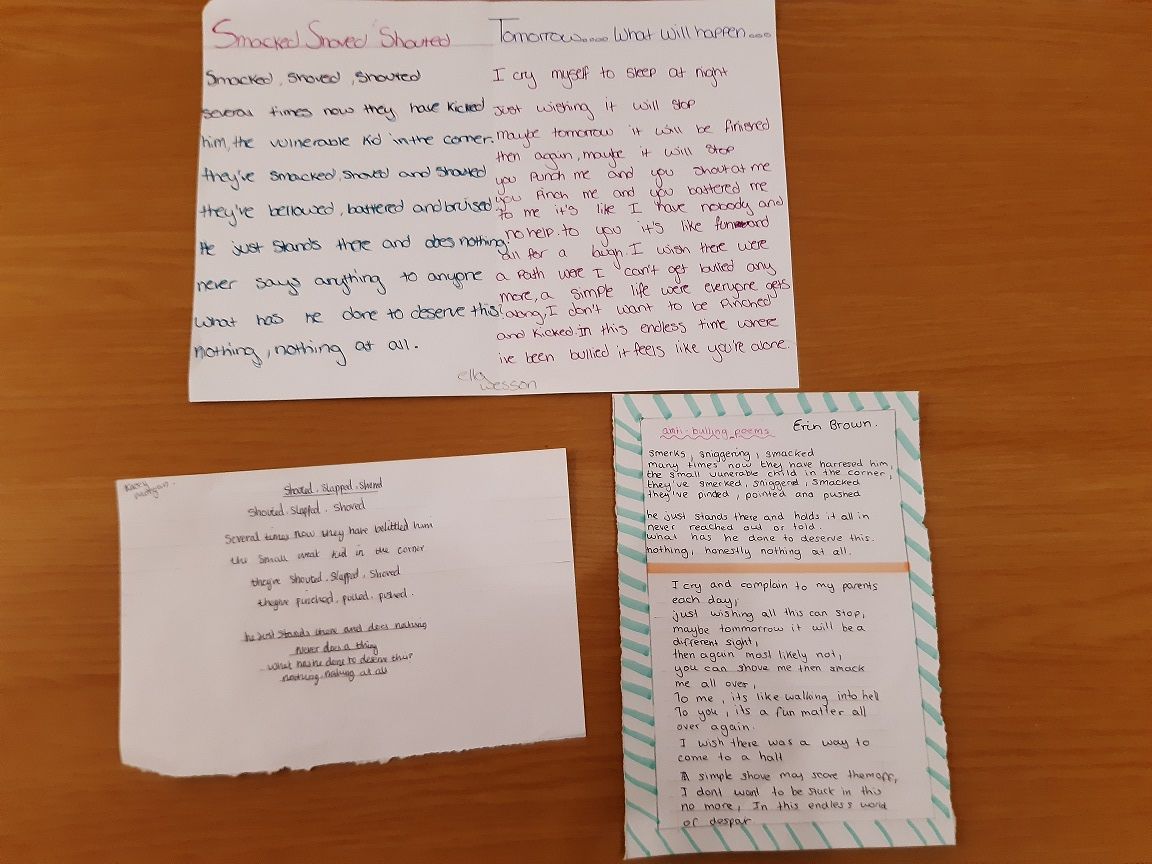 Smacked Shoved Shouted
Smacked, Shoved, Shouted
several times now they have kicked
him, the vulnerable kid in the corner.
they've smacked, shoved and shouted
they've bellowed, battered and bruised
He just stands there and does nothing.
never says anything to anyone
What has he done to deserve this?
nothing, nothing at all.
Tomorrow.... What will happen...
I cry myself to sleep at night
just wishing it will stop
maybe tomorrow it will be finished
then again, maybe it will stop
you punch me and you shout at me
you pinch me and you battered me
to me it's like I have nobody and
no help. to you it's like fun and
all for a laugh. I wish there were
a path were I can't get bullied any
more, a simple life were everyone gets
along, I don't want to be pinched
and kicked. In this endless time where
ive been bullied it feels like you're alone.
ella
wesson
Morgan.
Shouted. Slapped. Shoved
Shouted. Slapped. Shoved
Several times now they have belittled him
the small weak kid in the corner
they've shouted. slapped, shoved
they've punched, pulled. pushed.
he just stands there and does nothing
Never does a thing
What has he done to deserve this?
nothing. nothing at all
anti-bulling poems
Erin Brown.
smerks, sniggering, smacked
many times now they have harresed him,
the small vunerable child in the corner,
they've smerked, sniggerd, smacked
they've pinded, pointed and pushed
he just stands there and holds it all in
never reached out or told.
what has he done to deserve this.
nothing, honestly nothing at all.
I cry and complain to my parents
each day,
just wishing all this can stop,
maybe tommorrow it will be a
different sight,
then again most likely not,
you can shove me then smack
me all over,
To me, its like walking into hell
To you, its a fun matter all
over again.
I wish there was a way to
come to a halt
A simple shove may scare them off,
I dont want to be stuck in this
no more, In this endless world
of despar